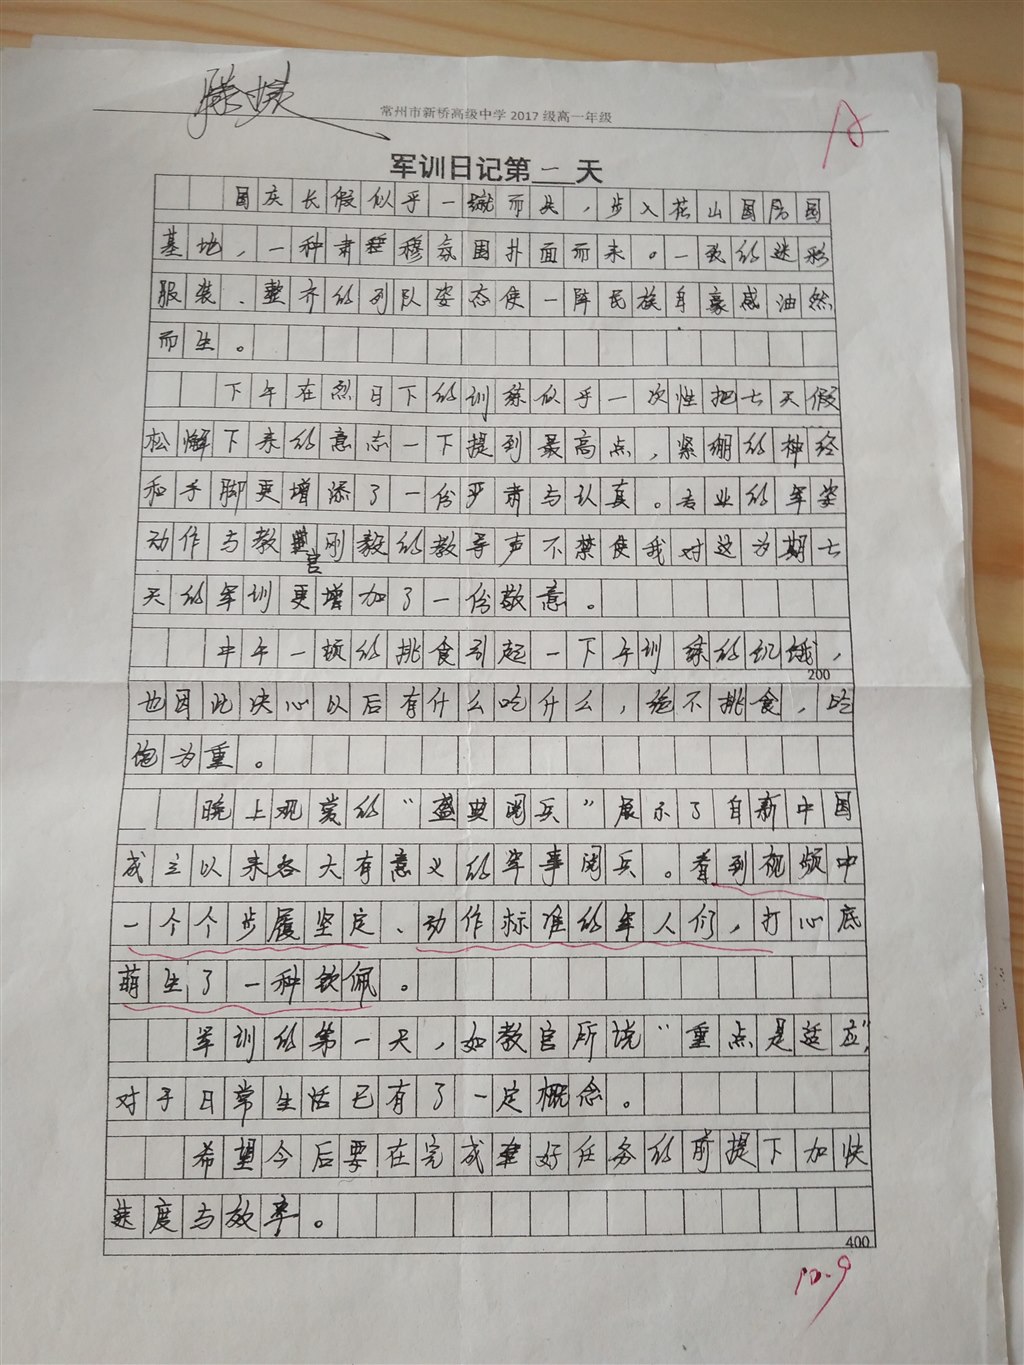 滕
常州市新桥高级中学 2017 级高一年级
A
军训日记第一天
国庆长假似乎一蹴而失，步入茅山国防园
基地，一种肃穆氛围扑面而来。一致的迷彩
服装、整齐的列队姿态使一阵民族自豪感油然
而生。
下午在烈日下的训练似乎一次性把七天假
松懈下来的意志一下提到最高点，紧绷的神经
和手脚更增添了一份严肃与认真。专业的军姿
动作与教官刚毅的教导声不禁使我对这为期七
天的军训更增加了一份敬意。
中午一顿的挑食引起一下午训练的饥饿，
200
也因此决心以后有什么吃什么，绝不挑食，吃
饱为重。
晚上观赏的“盛典阅兵”展示了自新中国
成立以来各大有意义的军事阅兵。看到视频中
一个个步履坚定、动作标准的军人们，打心底
萌生了一种钦佩。
军训的第一天，如教官所说“重点是适应”，
对于日常生活已有了一定概念。
希望今后要在完成好任务的前提下加快
速度与效率。
400
10.9